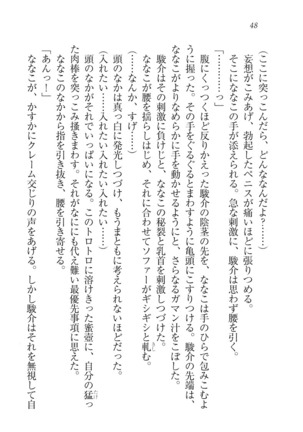 48
(ここに突っこんだら、どんななんだよ?……)
妄想がこみあげ、勃起したペニスが痛いほどに張りつめる。
そこにななこの手が添えられる。急な刺激に、駿介は思わず腰を引く。
「…………っ」
腹にくっつくほど反りかえった駿介の陰茎の先を、ななこは手のひらで包みこむよ
うに握った。その手をぐるぐるとまわすように亀頭にこすりつける。駿介の先端は、
ななこがよりなめらかに手を動かせるようにと、さらなるガマン汁をこぼした。
駿介は指の動きを強め、ななこの秘裂と乳首を刺激しつづけた。
ななこが腰を揺らしはじめ、それに合わせてソファーがギシギシと軋む。
(……なんか、すげぇ……)
頭のなかは真っ白に発光しつづけ、もうまともに考えられないほどだった。
(入れたい……入れたい……入れたいっ……)
頭のなかがそれでいっぱいになる。このトロトロに溶けきった蜜壺に、自分の猛っ
た肉棒を突っこみ掻きまわす。それがなににも代え難い最優先事項に思えた。
ななこのなかから指を引き抜き、腰を引き寄せる。
「あんっ!」
ななこが、かすかにクレーム交じりの声をあげる。しかし駿介はそれを無視して自